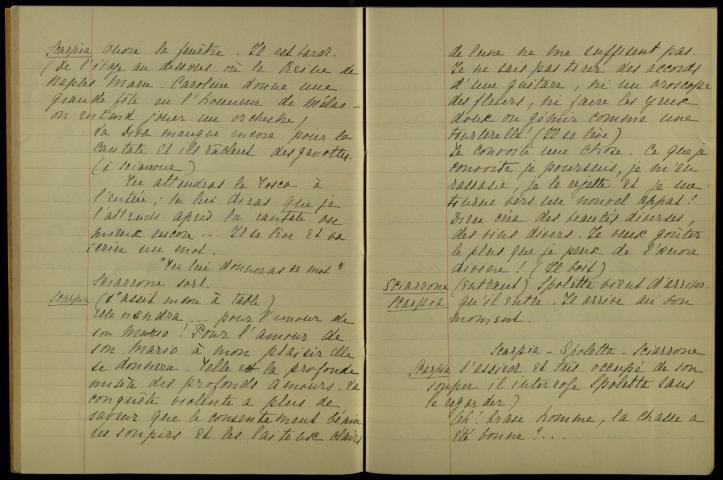 Scarpia Ouvre la fenêtre. Il est tard.
(De l'étage au dessous où la Reine de
Naples Marie-Caroline donne une
grande fête en l'honneur de Mélas-
on entend jouer un orchestre)
La Diva manque encore pour la
Cantate et ils raclent des gavottes.
(à Sciarrone)
Tu attendras la Tosca à
l'entrée; tu lui diras que je
l'attends après la cantate ou
mieux encore... Il se lève et va
écrire un mot.
"Tu lui donneras ce mot"
Sciarrone sort.
Scarpia (s'asseit encore à table)
Elle viendra... pour l'amour de
son Mario! Pour l'amour de
son Mario à mon plaisir elle
se donnera. Telle est la profonde
misère des profonds amours. La
conquête violente a plus de
saveur que le consentement bénin
les soupirs et les laiteux clairs
de lune ne me suffisent pas.
Je ne sais pas tirer des accords
d'une guitare, ni un oroscope
des fleurs, ni faire les yeux
doux ou gémir comme une
tourterelle! (Il se lève)
Je convoite une chose. Ce que je
convoite je poursuis, je m'en
rassasie, je le rejette et je me
tourne vers un nouvel appat!
Dieu créa des beautés diverses,
des vins divers. Je veux goûter
le plus que je peux de l'œuvre
divine! (Il boit)
Sciarrone (entrant) Spoletta vient d'arriver.
Scarpia qu'il entre. Il arrive au bon
moment.
Scarpia - Spoletta - Sciarrone
Scarpia s'asseoit et très occupé de son
souper il interroge Spoletta sans
le regarder)
Eh! brave homme, la chasse a
été bonne?...